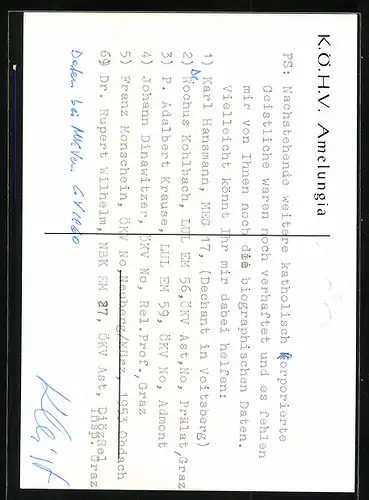 K.Ö.H.V. Amelungia
PS: Nachstehende weitere katholisch korporierte
Geistliche waren noch verhaftet und es fehlen
mir von Ihnen noch die biographischen Daten.
Vielleicht könnt Ihr mir dabei helfen:
1) Karl Hansmann, MEG 17, (Dechant in Voitsberg)
2) Dr. Rochus Kohlbach, LUL EM 56, ÖKV Ast, No, Prälat, Graz
3) P. Adalbert Krause, LUL EM 59, ÖKV No, Admont
4) Johann Dinawitzer, ÖKV No, Rel.Prof., Graz
5) Franz Monschein, ÖKV No, Neuberg/Mürz, 1953 Obdach
6) Dr. Rupert Wilhelm, NBK EM 27, ÖKV Ast, DiözRel
Insp. Graz
Daten bei